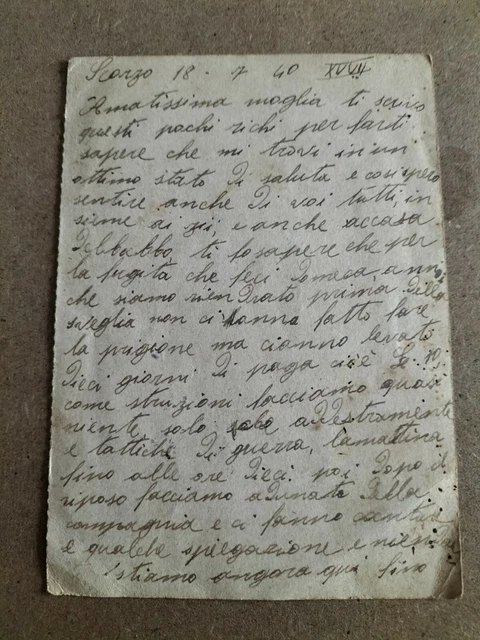 Scorzo 18 - 7 40 XVIII
Amatissima moglia ti scrivo
questi pochi righi per farti
sapere che mi trovi in un
ottimo stato di saluta e cosi spero
sentire anche di voi tutti, in
sieme ai zii, e anche accasa
debbabbo, ti fo sapere che per
la fugità che feci Domeca, a noi
che siamo riendrato prima della
sveglia non ci hanno fatto fare
la prigione ma cianno levato
dieci giorni di paga cioè
come struzioni facciamo quasi
niente solo addestramente
e tattiche di guerra, lamattina
fino alle ore dieci. poi dopo il
riposo facciamo adunata della
compagnia e ci fanno cantare
e qualche spiegazione e
stiamo angora qui fino